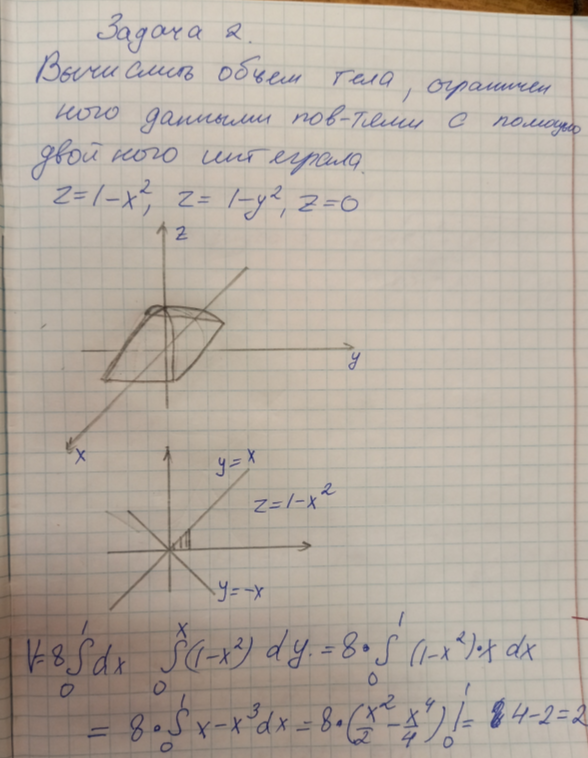 Задача 2.
Вычислить объем тела, ограничен
ного данными пов-тями с помощью
двойного интеграла.
z=1-x², z= 1-y², z=0
z
y
x
y=x
z=1-x²
y=-x
V=8∫₀¹dx ∫₀ˣ(1-x²) dy.=8·∫₀¹ (1-x²)·x dx
= 8·∫₀¹ x-x³dx=8·(x²/2-x⁴/4)|₀¹= 4-2=2